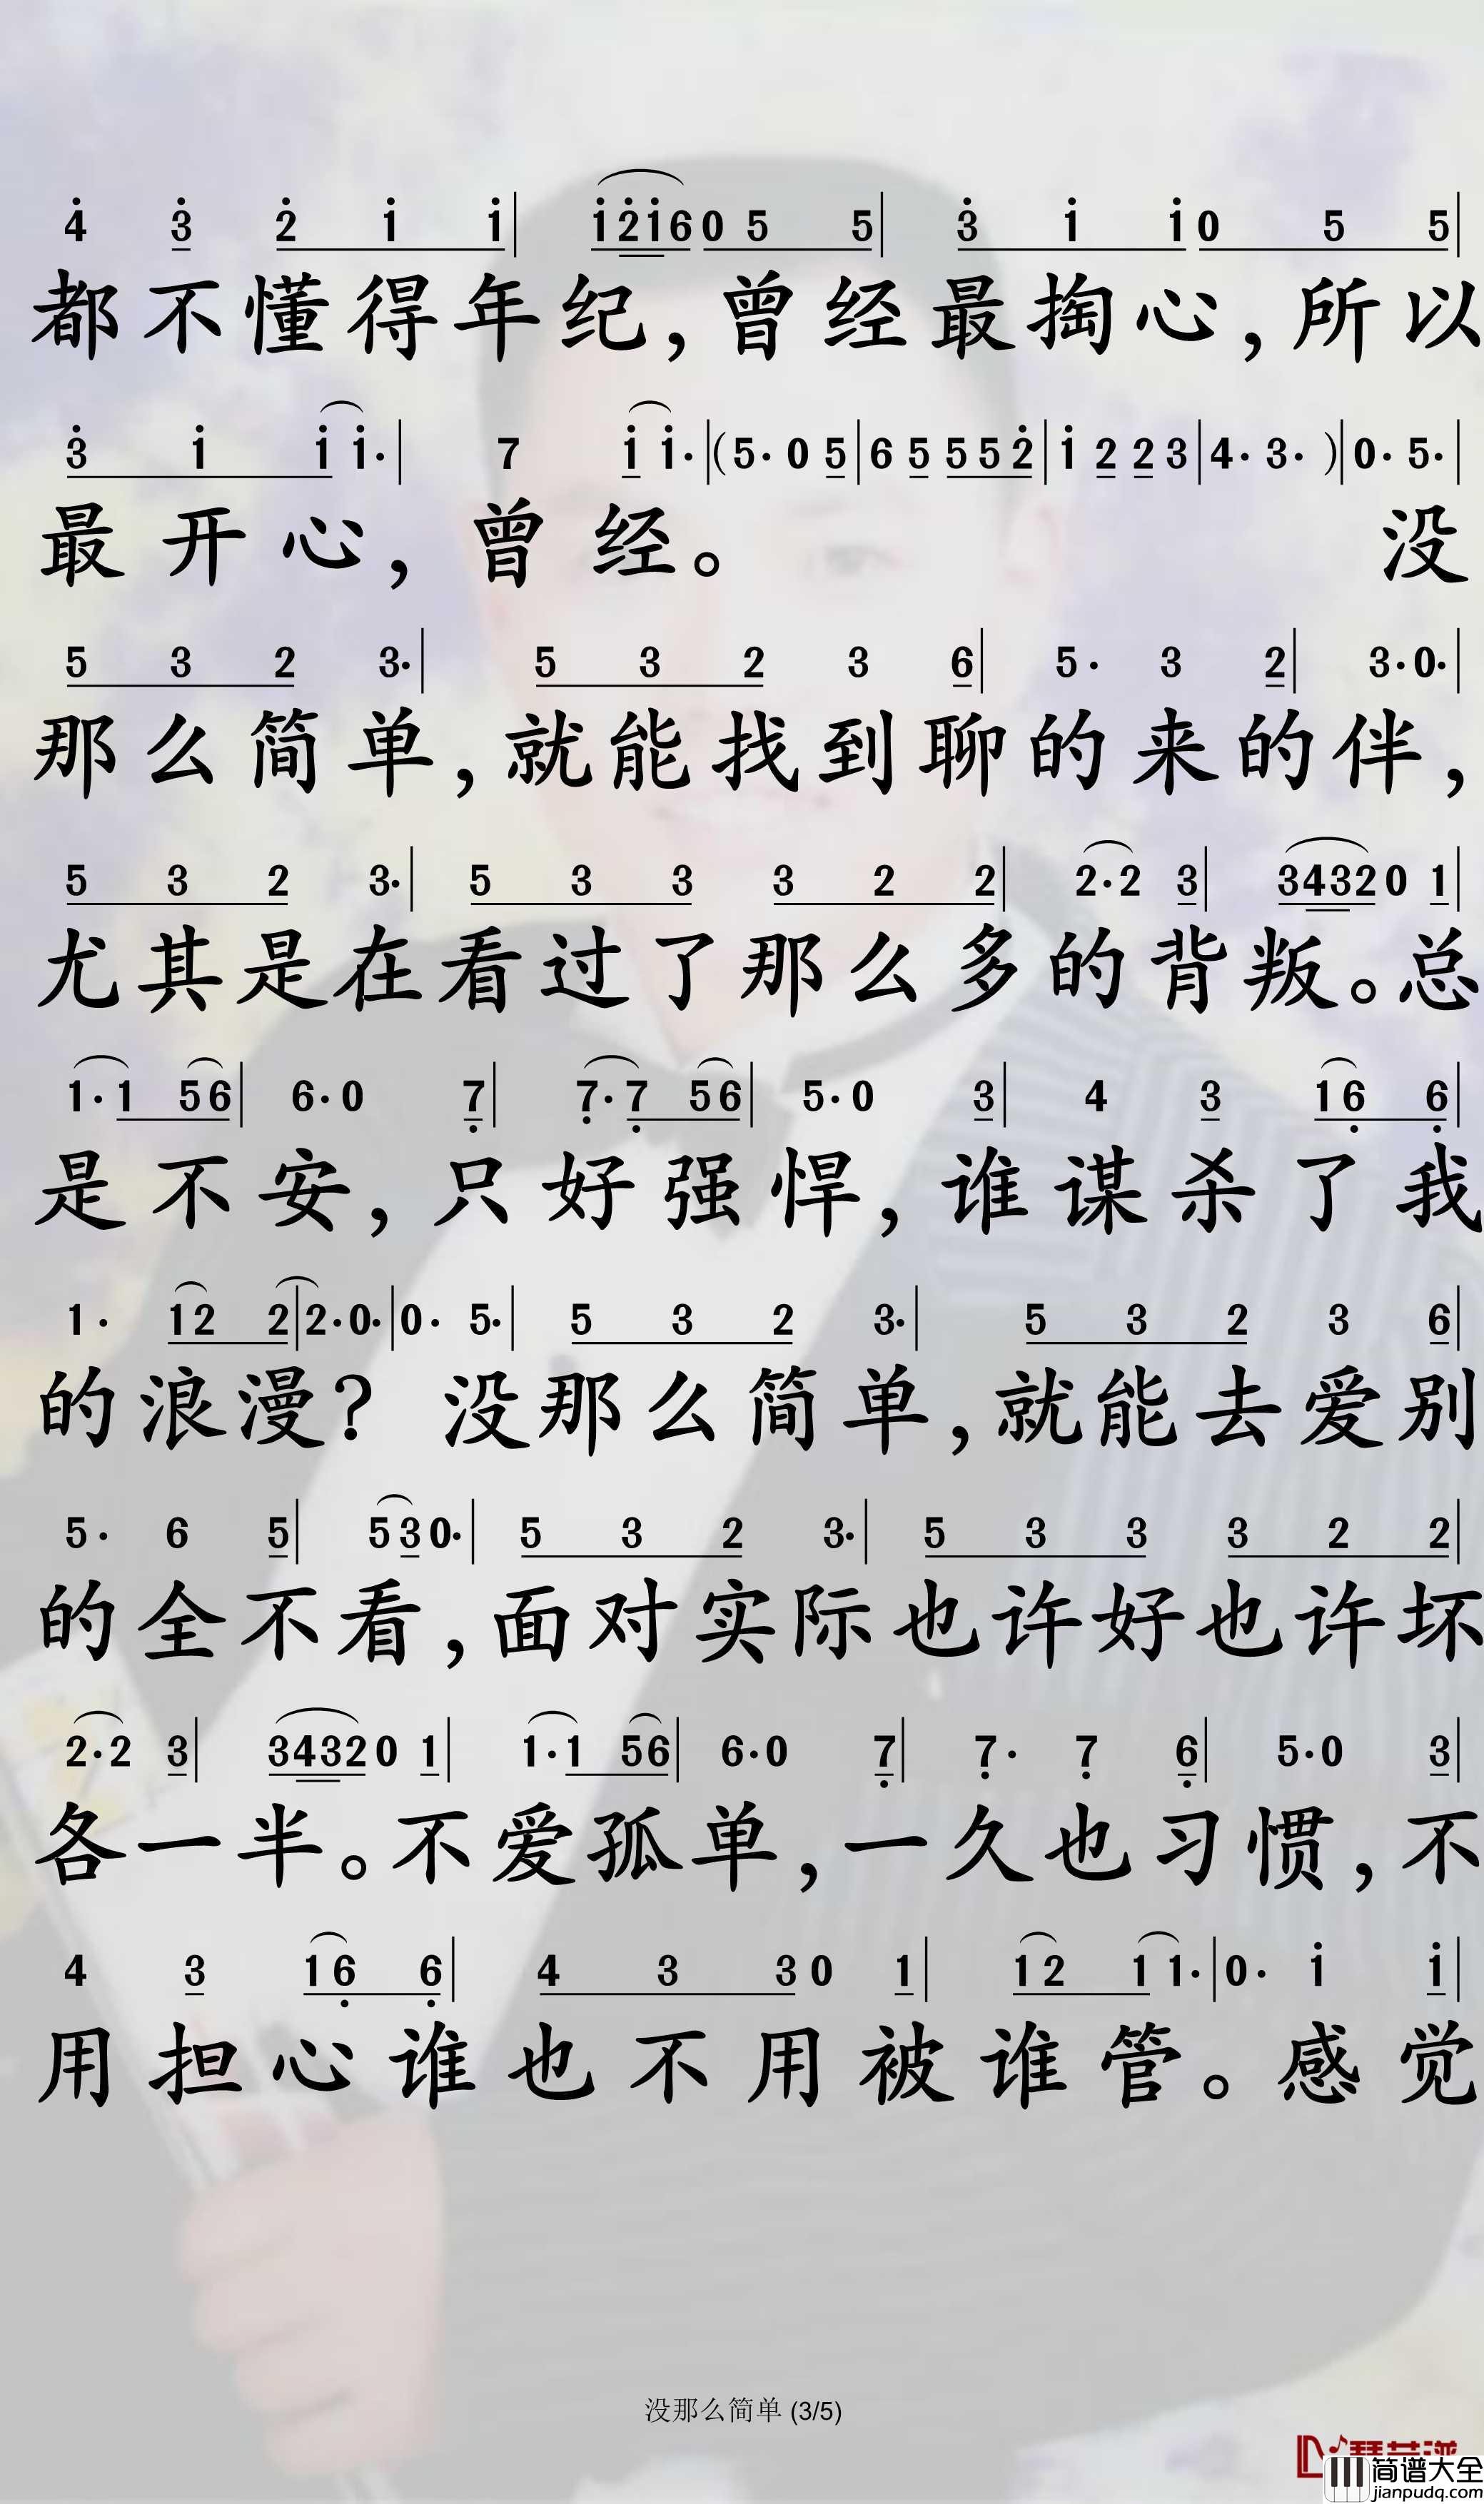 4̇ 3̇ 2̇ 1̇ 1̇| 1̇2̇1̇6 0 5 5| 3̇ 1̇ 1̇ 0 5 5|
都不懂得年纪,曾经最掏心,所以
3̇ 1̇ 1̇ 1̇·| 7 1̇ 1̇·|(5·0 5|6 5 5 5 2̇|1̇ 2 2 3|4·3· )|0·5·|
最开心,曾经。 没
5 3 2 3·| 5 3 2 3 6| 5· 3 2| 3·0·|
那么简单,就能找到聊的来的伴,
5 3 2 3·| 5 3 3 3 2 2| 2·2 3| 3432 0 1|
尤其是在看过了那么多的背叛。总
1·1 56| 6·0 7̣| 7̣·7̣ 56| 5·0 3| 4 3 16̣ 6̣|
是不安,只好强悍,谁谋杀了我
1· 12 2|2·0·|0· 5·| 5 3 2 3·| 5 3 2 3 6|
的浪漫? 没那么简单,就能去爱别
5· 6 5| 53 0·| 5 3 2 3·| 5 3 3 3 2 2|
的全不看,面对实际也许好也许坏
2·2 3| 3432 0 1| 1·1 56| 6·0 7̣| 7̣· 7̣ 6̣| 5·0 3|
各一半。不爱孤单,一久也习惯,不
4 3 16̣ 6̣| 4 3 3 0 1| 12 1 1·|0· 1̇ 1̇|
用担心谁也不用被谁管。感觉
没那么简单 (3/5)
简谱大全
jianpudq.com